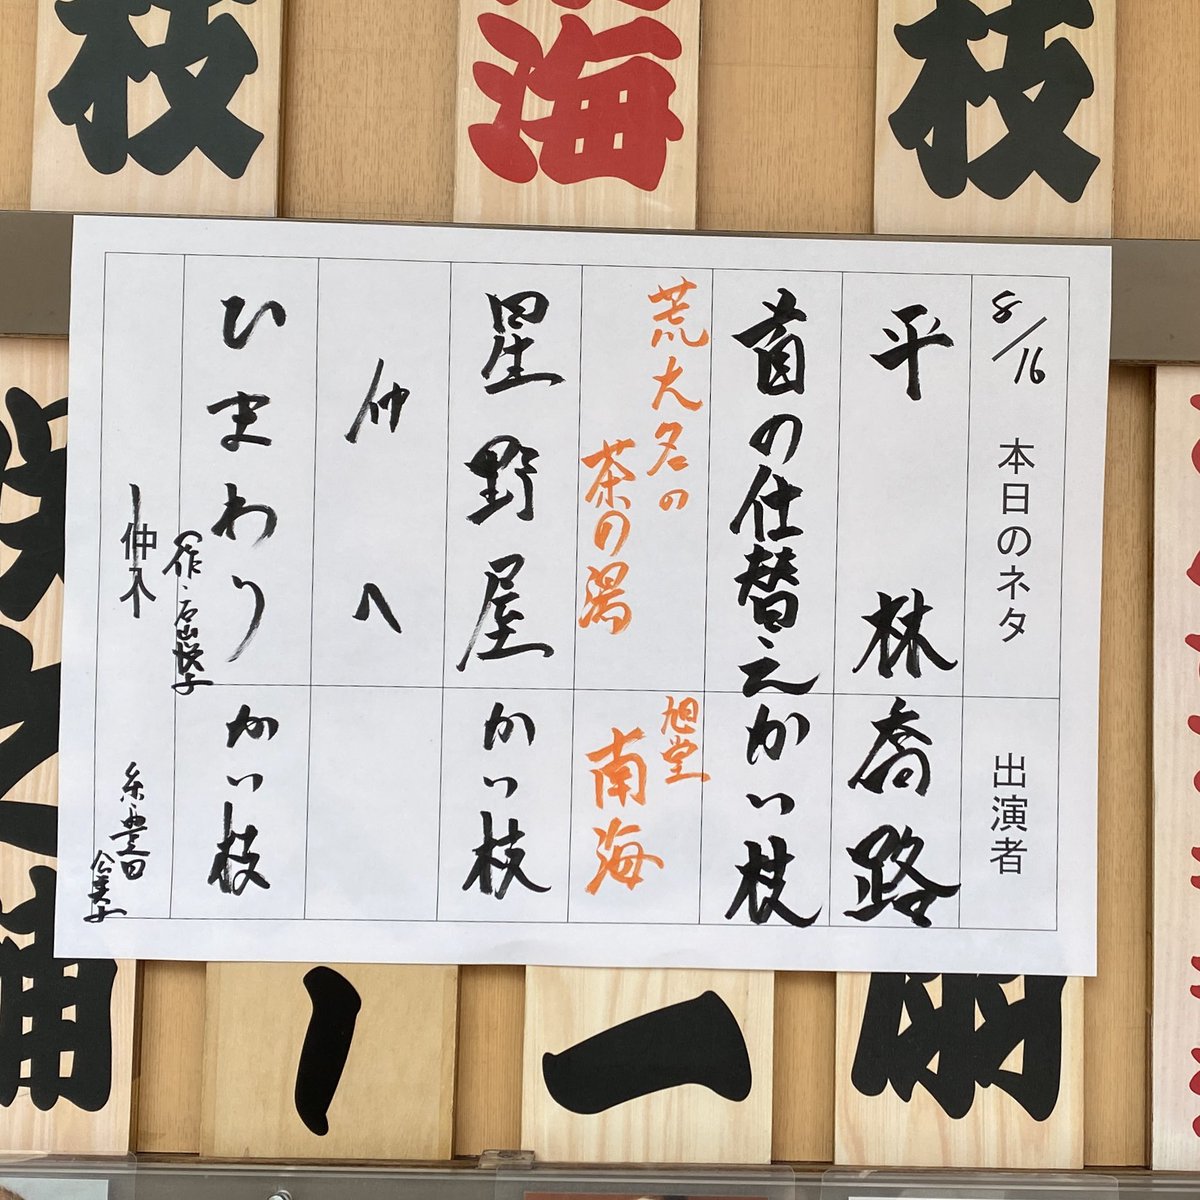 枝
海
枝
8/16 本日のネタ
出演者
平林
喬路
首の仕替え
かい枝
荒大名の
茶の湯
旭堂
南海
星野屋
かい枝
仲入
ひまわり
(作・石山悦子)
かい枝
仲入
糸・豊田
公美子